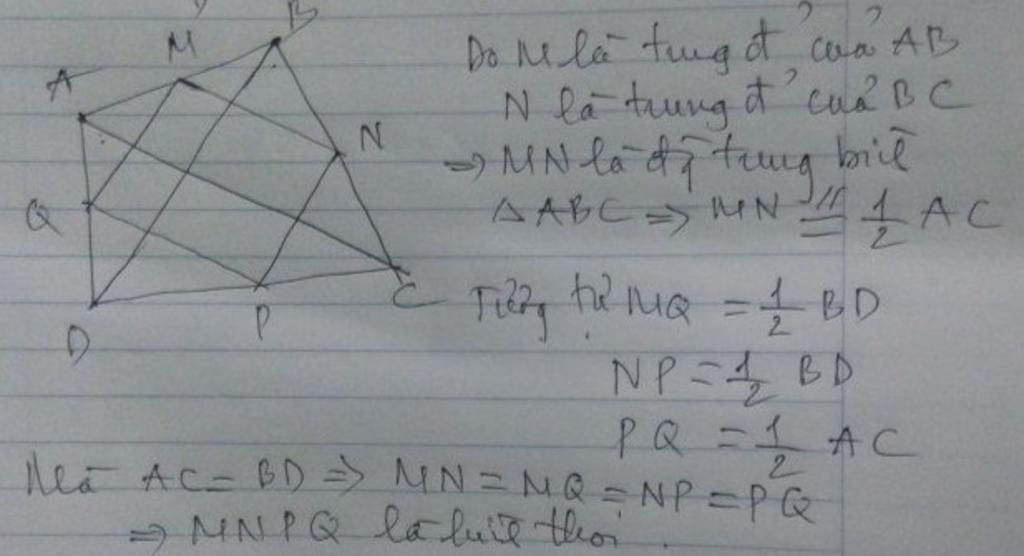 B
M
A
N
Q
C
P
D
Do M là trung đ' của AB
N là trung đ' của BC
⇒ MN là đg trung bình
Δ ABC ⇒ MN //= 1/2 AC
Tương tự MQ = 1/2 BD
NP = 1/2 BD
PQ = 1/2 AC
Mà AC = BD ⇒ MN = MQ = NP = PQ
⇒ MNPQ là hình thoi.